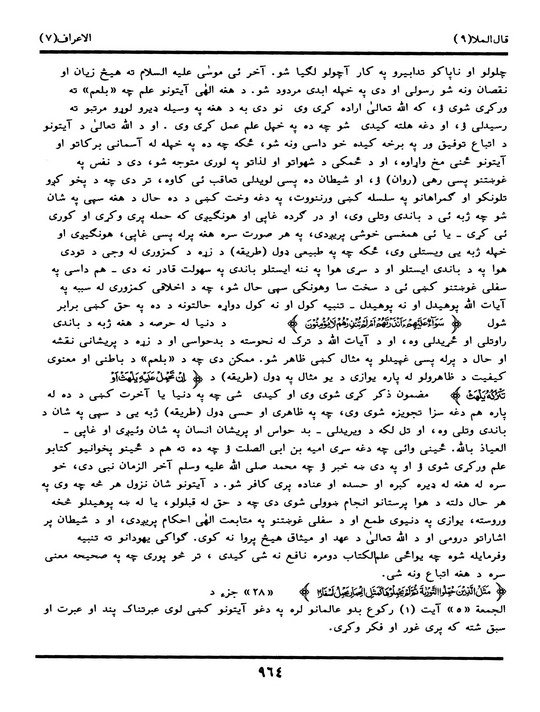 قال الملا(۹)
الاعراف(۷)
چلولو او ناپاکو تدابیرو په کار آچولو لگیا شو. آخر ئی موسٰی علیه السلام ته هیڅ زیان او
نقصان ونه شو رسولی او دی په خپله ابدی مردود شو. د هغه الٰهی آیتونو علم چه «بلعم» ته
ورکړی شوی ؤ، که الله تعالیٰ اراده کړی وی نو دی به د هغه په وسیله ډیرو لوړو مرتبو ته
رسیدلی ؤ، او دغه هلته کیدی شو چه ده په خپل علم عمل کړی وی . او د الله تعالیٰ د آیتونو
د اتباع توفیق ور په برخه کیده خو داسی ونه شو، ځکه چه ده په خپله له آسمانی برکاتو او
آیتونو څنی مخ واړاوه، او د ځمکی د شهواتو او لذاتو په لوری متوجه شو، دی د نفس په
غوښتنو پسی رهی (روان) ؤ، او شیطان ده پسی لویدلی تعاقب ئی کاوه، تر دی چه د پخو کږو
تلونکو او گمراهانو په سلسله کښی ورننووت، په دغه وخت کښی د ده حال د هغه سپی په شان
شو چه ژبه ئی د باندی وتلی وی، او در گرده غاپی او هونگیږی که حمله پری وکړی او کوری
ئی کړی ـ یا ئی همغسی خوشی پریږدی، په هر صورت سره هغه پرله پسی غاپی، هونگیږی او
خپله ژبه یی ویستلی وی، ځکه چه په طبیعی ډول (طریقه) د زړه د کمزوری له وجی د تودی
هوا په د باندی ایستلو او د سړی هوا په ننه ایستلو باندی په سهولت قادر نه دی ـ هم داسی په
سفلی غوښتنو کښی ئی د سخت سا وهونکی سپی حال شو، چه د اخلاقی کمزوری له سببه په
آیات الله پوهیدل او نه پوهیدل ـ تنبیه کول او نه کول دواړه حالتونه د ده په حق کښی برابر
شول ﴿ سَوَآءٌ عَلَیْهِمْ ءَاَنْذَرْتَهُمْ اَمْ لَمْ تُنْذِرْهُمْ لَا یُؤْمِنُوْنَ ﴾ د دنیا له حرصه د هغه ژبه د باندی
راوتلی او ځړیدلی وه، او د آیات الله د ترک له نحوسته د بدحواسی او د زړه د پریشانی نقشه
او حال د پرله پسی غپیدلو په مثال کښی ظاهر شو. ممکن دی چه د «بلعم» د باطنی او معنوی
کیفیت د ظاهرولو له پاره یوازی د یو مثال په ډول (طریقه) د ﴿ اِنْ تَحْمِلْ عَلَیْهِ یَلْهَثْ اَوْ
تَتْرُكْهُ یَلْهَثْ ﴾ مضمون ذکر کړی شوی وی او کیدی شی چه په دنیا یا آخرت کښی د ده له
پاره هم دغه سزا تجویزه شوی وی، چه په ظاهری او حسی ډول (طریقه) ژبه یی د سپی په شان د
باندی وتلی وه، او تل لکه د ویریدلی ـ بد حواس او پریشان انسان په شان وئیږی او غاپی ـ
العیاذ بالله. څینی وائی چه دغه سړی امیه بن ابی الصلت ؤ چه ده ته هم د ځینو پخوانیو کتابو
علم ورکړی شوی ؤ او په دی ښه خبر ؤ چه محمد صلی الله علیه وسلم آخر الزمان نبی دی، خو
سره له هغه له ډیره کبره او حسده او عناده پری کافر شو. د آیتونو شان نزول هر څه چه وی په
هر حال دلته د هوا پرستانو انجام ښوولی شوی دی چه د حق له قبلولو، یا له ښه پوهیدلو څخه
وروسته، یوازی په دنیوی طمع او د سفلی غوښتنو په متابعت الٰهی احکام پریږدی، او د شیطان پر
اشاراتو درومی او د الله تعالیٰ د عهد او میثاق هیڅ پروا نه کوی. گواکی یهودانو ته تنبیه
وفرمایله شوه چه یواځی علم‌الکتاب دومره نافع نه شی کیدی ، تر څو پوری چه په صحیحه معنی
سره د هغه اتباع ونه شی.
﴿ مَثَلُ الَّذِیْنَ حُمِّلُوا التَّوْرٰىةَ ثُمَّ لَمْ یَحْمِلُوْهَا كَمَثَلِ الْحِمَارِ یَحْمِلُ اَسْفَارًا ﴾ «۲۸» جزء د
الجمعة «٥» آیت (١) رکوع بدو عالمانو لره په دغو آیتونو کښی لوی عبرتناک پند او عبرت او
سبق شته که پری غور او فکر وکړی.
٩٦٤